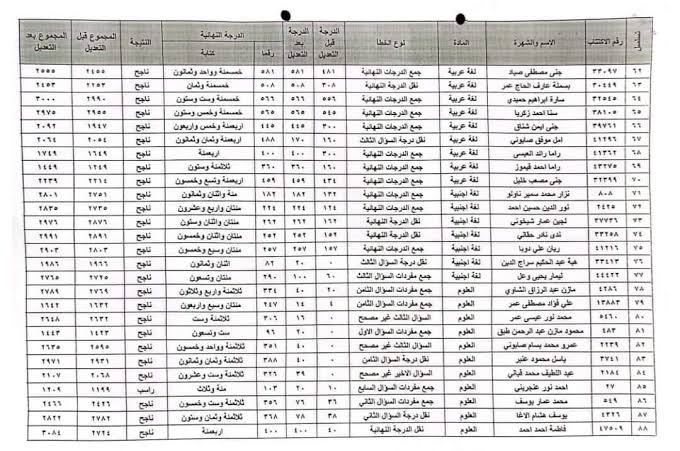 تسلسل رقم الاكتتاب الاسم والشهرة المادة نوع الخطأ الدرجة قبل التعديل الدرجة بعد التعديل الدرجة النهائية رقما كتابة النتيجة المجموع قبل التعديل المجموع بعد التعديل
٦٢ ٣٣٠٩٧ جنى مصطفى صياد لغة عربية جمع الدرجات النهائية ٤٨١ ٥٨١ ٥٨١ خمسمئة وواحد وثمانون ناجح ٢٤٥٥ ٢٥٥٥
٦٣ ٣٠٤٤٩ بسملة عارف الحاج عمر لغة عربية نقل الدرجة النهائية ٣٠٨ ٥٠٨ ٥٠٨ خمسمئة وثمان ناجح ٢٢٥٣ ٢٤٥٣
٦٤ ٣٢٥٤٥ سارة ابراهيم حميدي لغة عربية جمع الدرجات النهائية ٥٥٦ ٥٦٦ ٥٦٦ خمسمئة وست وستون ناجح ٢٩٩٠ ٣٠٠٠
٦٥ ٣٨١٠٥ سنا احمد زكريا لغة عربية جمع الدرجات النهائية ٥٤٥ ٥٦٥ ٥٦٥ خمسمئة وخمس وستون ناجح ٢٩٥٥ ٢٩٧٥
٦٦ ٣٩٧٦١ جنى ايمن شناق لغة عربية جمع الدرجات النهائية ٣٠٠ ٤٤٥ ٤٤٥ اربعمئة وخمس واربعون ناجح ١٩٤٧ ٢٠٩٢
٦٧ ٤١٢٩٦ امل موفق صابوني لغة عربية نقل درجة السؤال الثالث ١٦٠ ١٧٠ ٤٨٨ اربعمئة وثمان وثمانون ناجح ٢٠٥٤ ٢٠٦٤
٦٨ ٤١٣٦٧ راما رائد العيسى لغة عربية جمع الدرجات النهائية ٣٠٠ ٤٠٠ ٤٠٠ اربعمئة ناجح ١٦٤٩ ١٧٤٩
٦٩ ٤٣٢٧٥ راما احمد قيموز لغة عربية نقل الدرجة النهائية ١٦٠ ٣٦٠ ٣٦٠ ثلاثمئة وستون ناجح ١٢٤٩ ١٤٤٩
٧٠ ٣٢٣٩٩ جنى مصعب خليل لغة عربية جمع الدرجات النهائية ٤٣٤ ٤٥٩ ٤٥٩ اربعمئة وتسع وخمسون ناجح ٢٢١٤ ٢٢٣٩
٧١ ٨٠٨ نزار محمد سمير ناولو لغة اجنبية جمع الدرجات النهائية ١٣٢ ١٨٢ ١٨٢ مئة واثنان وثمانون ناجح ٢٧٥١ ٢٨٠١
٧٢ ٢٤٢٥ نور الدين حسين احمد لغة اجنبية جمع الدرجات النهائية ١٢٤ ٢٢٤ ٢٢٤ مئتان واربع وعشرون ناجح ٢٧٣٥ ٢٨٣٥
٧٣ ٣٧٧٣٦ لجين عمار شيخوني لغة اجنبية نقل الدرجة النهائية ١٦٢ ٢٦٢ ٢٦٢ مئتان واثنان وستون ناجح ٢٨٧٦ ٢٩٧٦
٧٤ ٣٣٢٥٨ ندى نادر حقاني لغة اجنبية نقل الدرجة النهائية ١٥٢ ٢٥٢ ٢٥٢ مئتان واثنان وخمسون ناجح ٢٨٩١ ٢٩٩١
٧٥ ٤١٢١٦ ريان علي دوبا لغة اجنبية جمع الدرجات النهائية ١٥٧ ٢٥٧ ٢٥٧ مئتان وسبع وخمسون ناجح ٢٨٠٣ ٢٩٠٣
٧٦ ٣٣٤١٣ هبة عبد الحكيم سراج الدين لغة اجنبية نقل درجة السؤال الثالث ٠ ٢٠ ٨٢ اثنان وثمانون ناجح ١٩٦٦ ١٩٨٦
٧٧ ٤٤٤٢٢ ليمار يحيى وعل لغة اجنبية جمع مفردات السؤال الثالث ٦٠ ١٠٠ ٢٩٠ مئتان وتسعون ناجح ٢٧٢٥ ٢٧٦٥
٧٨ ٤٢٨٦ مازن عبد الرزاق الشاوي العلوم جمع مفردات السؤال الثامن ٢٠ ٤٠ ٣٣٤ ثلاثمئة واربع وثلاثون ناجح ٢٧٦٩ ٢٧٨٩
٧٩ ١٣٨٨٣ علي فؤاد مصطفى عمر العلوم جمع مفردات السؤال الثامن ٤ ١٤ ٢٤٧ مئتان وسبع واربعون ناجح ١٦٣٢ ١٦٤٢
٨٠ ٥٤٦٠ محمد نور عيسى عمر العلوم السؤال الثالث غير مصحح ٠ ١٦ ٣٠٦ ثلاثمئة وست ناجح ٢٦٣٢ ٢٦٤٨
٨١ ٤٨٣ محمود مازن عبد الرحمن طبق العلوم جمع مفردات السؤال الاول ٠ ٢٠ ٩٦ ست وتسعون ناجح ١٤٢٣ ١٤٤٣
٨٢ ٢٢٣٩ عمرو محمد بسام صابوني العلوم السؤال الثالث غير مصحح ٠ ٤٠ ٣٥١ ثلاثمئة وواحد وخمسون ناجح ٢٥٩٥ ٢٦٣٥
٨٣ ٣٧٤١ باسل محمود عنبر العلوم نقل درجة السؤال الثامن ٠ ٤٠ ٣٨٨ ثلاثمئة وثمان وثمانون ناجح ٢٩٣١ ٢٩٧١
٨٤ ٢١٨٤ عبد اللطيف محمد قباني العلوم السؤال الاخير غير مصحح ٠ ٣٩ ٣٢٦ ثلاثمئة وست وعشرون ناجح ٢٠٦٨ ٢١٠٧
٨٥ ٢٧ احمد نور عنجريني العلوم جمع مفردات السؤال السابع ١٠ ٢٠ ١٠٣ مئة وثلاث راسب ١١٩٩ ١٢٠٩
٨٦ ٥٤٩ محمد عمار يوسف العلوم جمع مفردات السؤال الثاني ٣٦ ٧٦ ٣٥٦ ثلاثمئة وست وخمسون ناجح ٢٤٢٦ ٢٤٦٦
٨٧ ٤٣٢٦ يوسف هشام الاغا العلوم نقل درجة السؤال الثاني ٣٨ ٧٨ ٣٦٨ ثلاثمئة وثمان وستون ناجح ٢٧٨٢ ٢٨٢٢
٨٨ ٤٧٥٠٩ فاطمة احمد احمد العلوم نقل الدرجة النهائية ٤٠ ٤٠٠ ٤٠٠ اربعمئة ناجح ٢٧٢٤ ٣٠٨٤